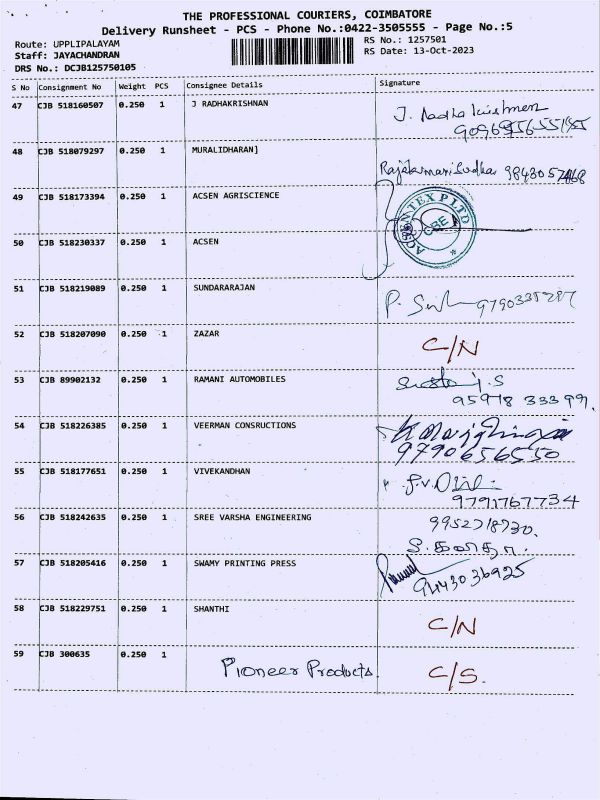 THE PROFESSIONAL COURIERS, COIMBATORE
Delivery Runsheet - PCS - Phone No.:0422-3505555 - Page No.:5
Route: UPPLIPALAYAM
RS No.: 1257501
Staff: JAYACHANDRAN
RS Date: 13-Oct-2023
DRS No.: DCJB125750105
S No Consignment No Weight PCS Consignee Details Signature
47 CJB 518160507 0.250 1 J RADHAKRISHNAN J. Radha Krishnan
48 CJB 518079297 0.250 1 MURALIDHARAN]
49 CJB 518173394 0.250 1 ACSEN AGRISCIENCE
ACSEN TEX P LTD
CBE
50 CJB 518230337 0.250 1 ACSEN
51 CJB 518219089 0.250 1 SUNDARARAJAN
52 CJB 518207090 0.250 1 ZAZAR C/N
53 CJB 89902132 0.250 1 RAMANI AUTOMOBILES
54 CJB 518226385 0.250 1 VEERMAN CONSRUCTIONS
9790656550
55 CJB 518177651 0.250 1 VIVEKANDHAN
9791767734
56 CJB 518242635 0.250 1 SREE VARSHA ENGINEERING 9952718730.
57 CJB 518205416 0.250 1 SWAMY PRINTING PRESS
9443036925
58 CJB 518229751 0.250 1 SHANTHI C/N
59 CJB 300635 0.250 1 Pioneer Products. C/S.